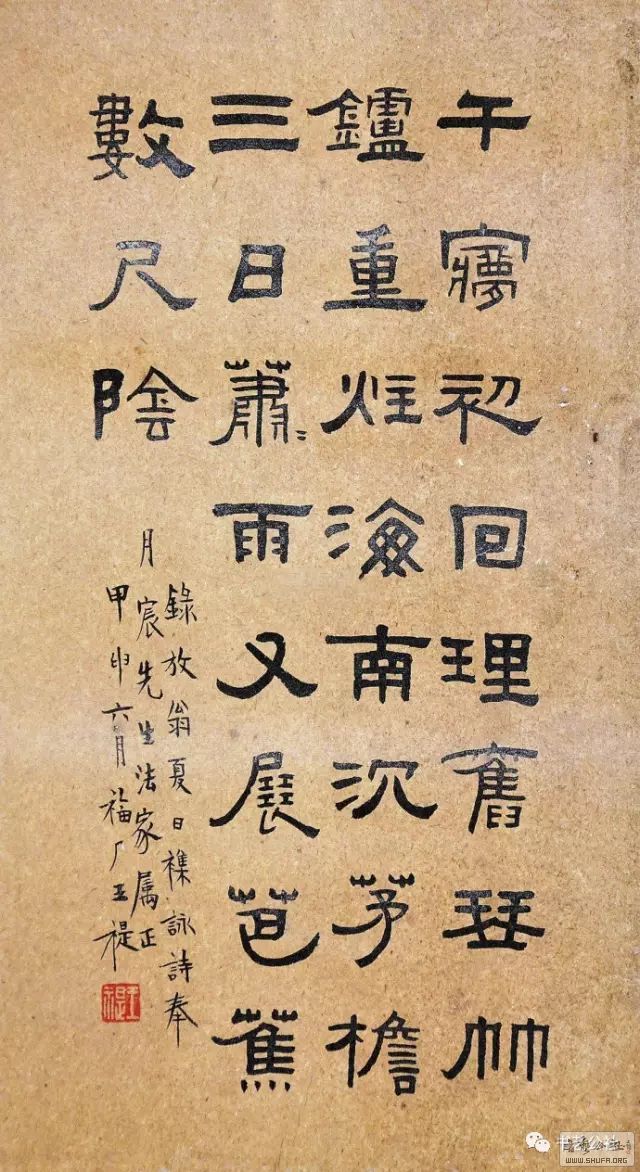 午夢初回理舊琴竹
鑪重炷海南沉茅檐
三日蕭〻雨又展芭蕉
數尺陰
錄放翁夏日襍詠詩奉
月宸先生法家属正
甲申六月福厂王禔
王禔
WWW.SHUFA.ORG